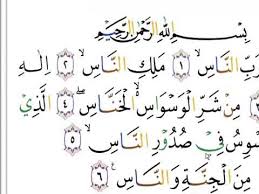 بِسْمِ اللهِ الرَّحْمٰنِ الرَّحِيْمِ
رَبِّ النَّاسِۙ ١ مَلِكِ النَّاسِۙ ٢ اِلٰهِ
٣ مِنْ شَرِّ الْوَسْوَاسِ ەۙ الْخَنَّاسِۖ ٤ الَّذِيْ
سْوِسُ فِيْ صُدُوْرِ النَّاسِۙ ٥
مِنَ الْجِنَّةِ وَالنَّاسِ ࣖ ٦